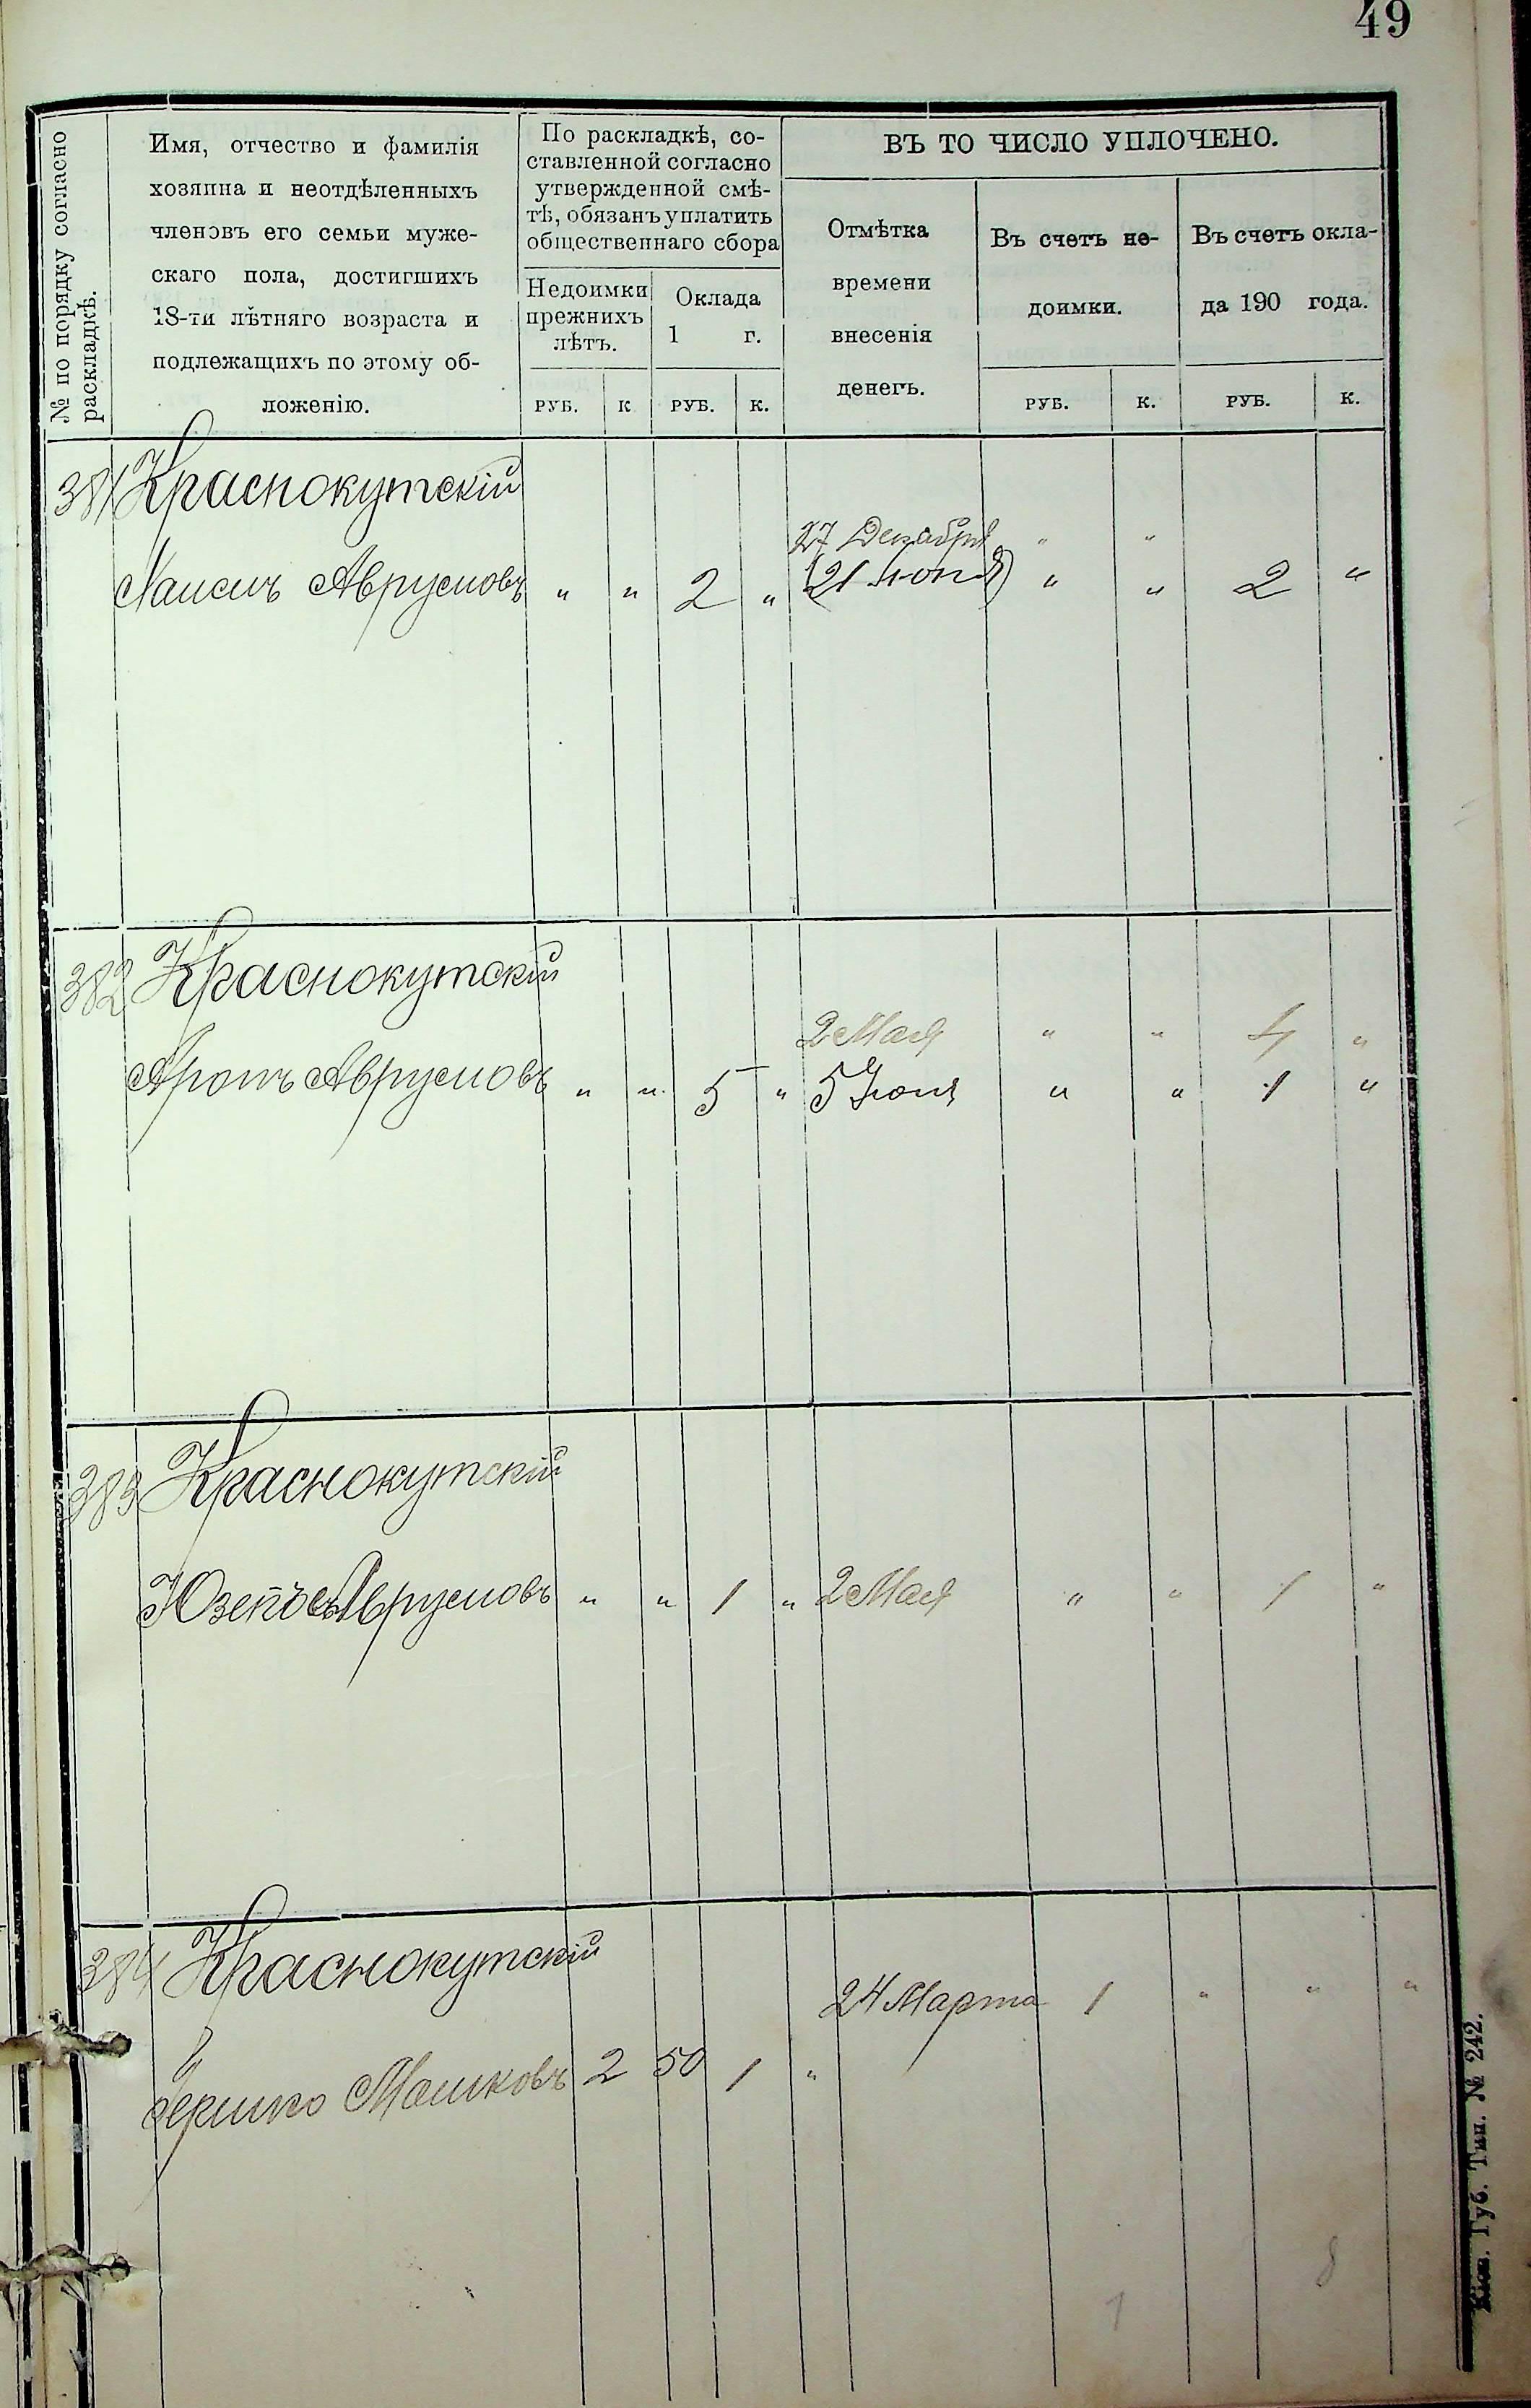 49
№ по порядку согласно
раскладкѣ.
Имя, отчество и фамилія
хозяина и неотдѣленныхъ
членовъ его семьи муже-
скаго пола, достигшихъ
18-ти лѣтняго возраста и
подлежащихъ по этому об-
ложенію.
По раскладкѣ, со-
ставленной согласно
утвержденной смѣ-
тѣ, обязанъ уплатить
общественнаго сбора
Недоимки
прежнихъ
лѣтъ.
Оклада
1 г.
РУБ. К РУБ. К.
ВЪ ТО ЧИСЛО УПЛОЧЕНО.
Отмѣтка
времени
внесенія
денегъ.
Въ счетъ не-
доимки.
РУБ. К.
Въ счетъ окла-
да 190 года.
РУБ. К.
381 Краснокутскій
27 Декабря " "
Аврумовъ " " 2 " (21 Июня) " " 2 "
382 Краснокутскій
2 Мая " " 4 "
Аронъ Аврумовъ " " 5 " 5 Июня " " 1 "
383 Краснокутскій
Юзепъ Аврумовъ " " 1 " 2 Мая " " 1 "
384 Краснокутскій
24 Марта 1 " " "
Гершко Мошковъ 2 50 1 "
1 8
Кіев. Губ. Тип. № 242.